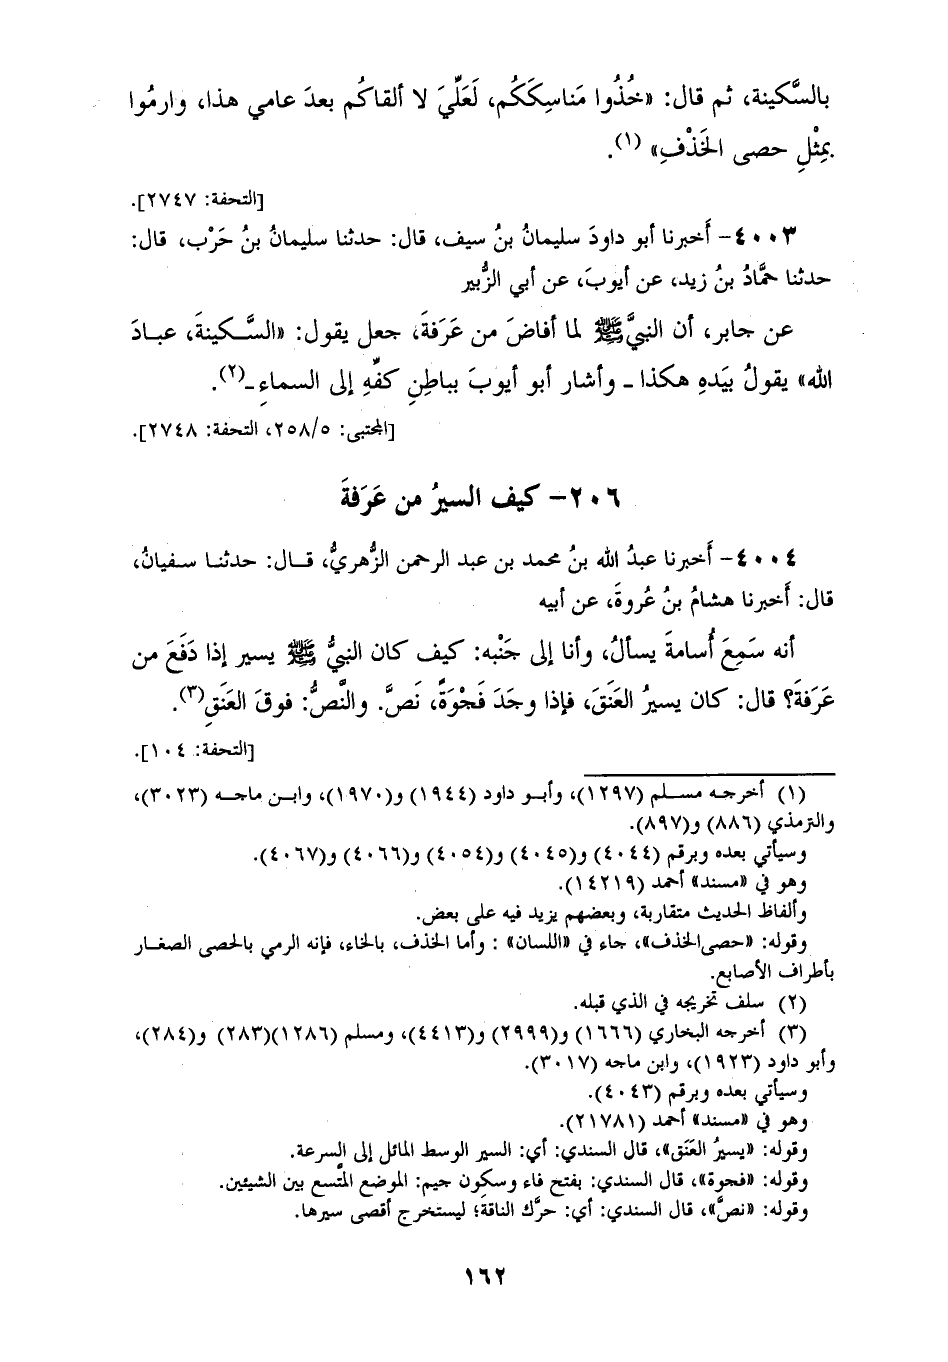 بالسَّكينة، ثم قال: «خُذُوا مَناسِكَكُم، لَعَلِّيَ لا ألقاكُم بعدَ عامي هذا، وارمُوا
بمِثْلِ حصى الخَذْفِ» (١).
[التحفة: ٢٧٤٧].
٤٠٠٣- أَخبرنا أبو داودَ سليمانُ بنُ سيف، قال: حدثنا سليمانُ بنُ حَرْب، قال:
حدثنا حمَّادُ بنُ زيد، عن أيوبَ، عن أبي الزُّبير
عن جابر، أن النبيَّ ﷺ لما أفاضَ من عَرَفةَ، جعل يقول: «السَّكينةَ، عبادَ
الله» يقولُ بيَدهِ هكذا ـ وأشار أبو أيوبَ بباطنِ كفِّهِ إلى السماءِ ـ(٢).
[المجتبى: ٢٥٨/٥، التحفة: ٢٧٤٨].
٢٠٦- كيف السيرُ من عَرَفةَ
٤٠٠٤- أَخبرنا عبدُ الله بنُ محمد بن عبد الرحمن الزُّهريُّ، قال: حدثنا سفيانُ،
قال: أَخبرنا هشامُ بنُ عُروةَ، عن أبيه
أنه سَمِعَ أُسامةَ يسألُ، وأنا إلى جَنْبه: كيف كان النبيُّ ﷺ يسير إذا دَفَعَ من
عَرَفةَ؟ قال: كان يسيرُ العَنَقَ، فإذا وجَدَ فَجْوَةً، نَصَّ. والنَّصُّ: فوقَ العَنَقِ(٣).
[التحفة: ١٠٤].
(١) أخرجه مسلم (١٢٩٧)، وأبو داود (١٩٤٤) و(١٩٧٠)، وابن ماجه (٣٠٢٣)،
والترمذي (٨٨٦) و(٨٩٧).
وسيأتي بعده وبرقم (٤٠٤٤) و(٤٠٤٥) و(٤٠٥٤) و(٤٠٦٦) و(٤٠٦٧).
وهو في «مسند» أحمد (١٤٢١٩).
وألفاظ الحديث متقاربة، وبعضهم يزيد فيه على بعض.
وقوله: «حصى الخذف»، جاء في «اللسان» : وأما الخذف، بالخاء، فإنه الرمي بالحصى الصغار
بأطراف الأصابع.
(٢) سلف تخريجه في الذي قبله.
(٣) أخرجه البخاري (١٦٦٦) و(٢٩٩٩) و(٤٤١٣)، ومسلم (١٢٨٦)(٢٨٣) و(٢٨٤)،
وأبو داود (١٩٢٣)، وابن ماجه (٣٠١٧).
وسيأتي بعده وبرقم (٤٠٤٣).
وهو في «مسند» أحمد (٢١٧٨١).
وقوله: «يسيرُ العَنَق»، قال السندي: أي: السير الوسط المائل إلى السرعة.
وقوله: «فجوة»، قال السندي: بفتح فاء وسكون جيم: الموضع المتَّسع بين الشيئين.
وقوله: «نصَّ»، قال السندي: أي: حرَّك الناقة؛ ليستخرج أقصى سيرها.
١٦٢